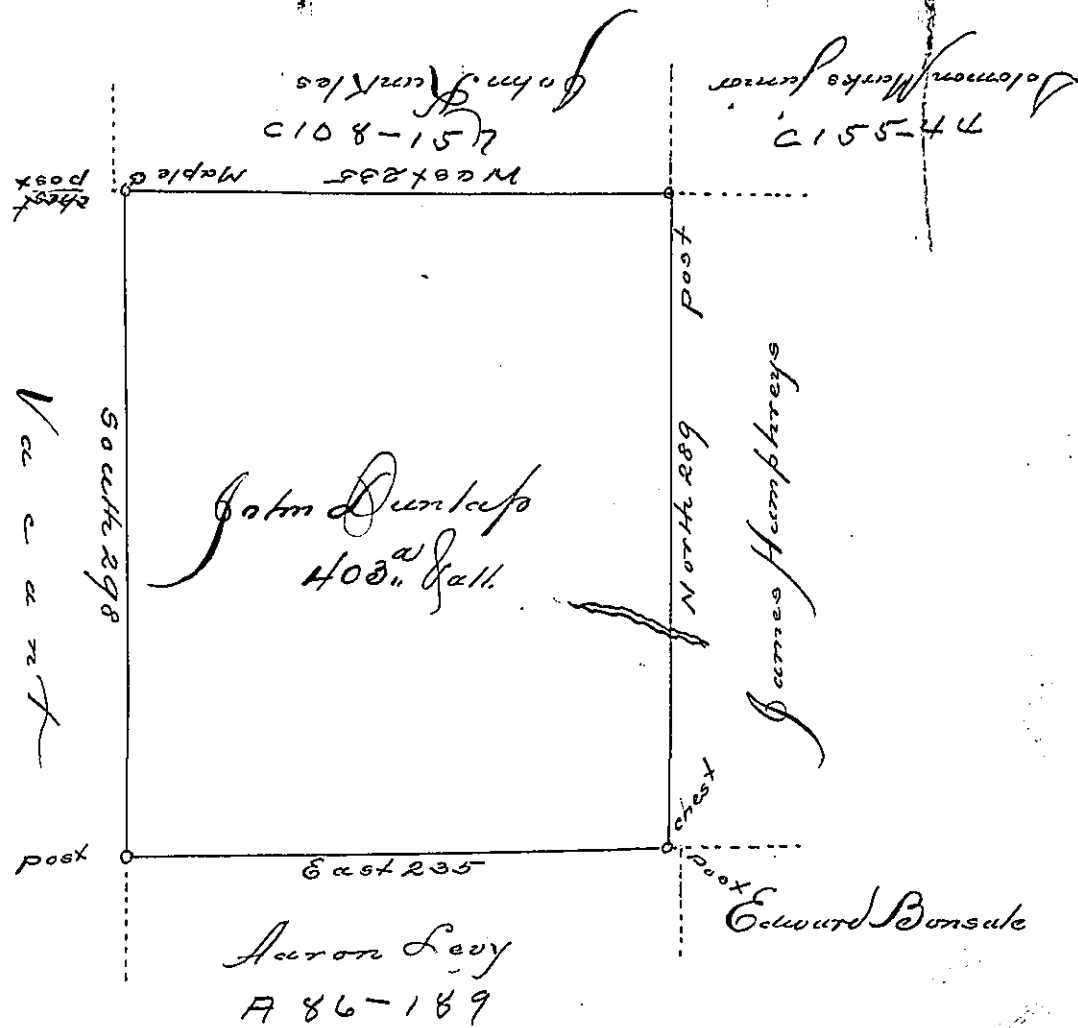 John Kunkles
C 108-157
Solomon Marks Junior
C 155-44
chest
post
Maple
West 235
post
South 298
Vacant
John Dunlap
403 a & all.
North 289
James Humphreys
chest
post
East 235
post
Edward Bonsale
Aaron Levy
A 86-189